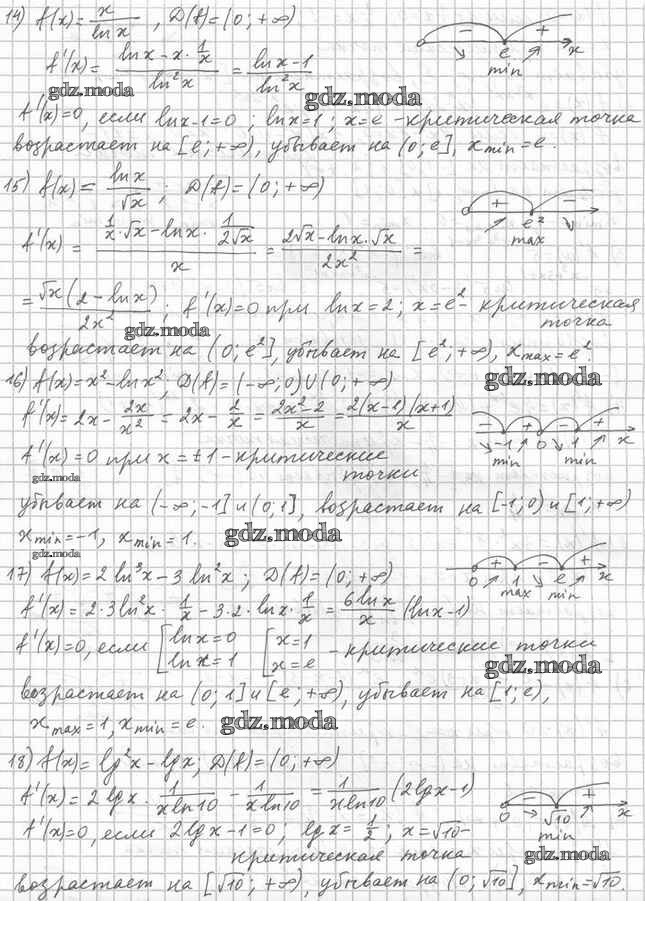 14) f(x) = x / ln x , D(f) = (0; +∞)
− + e x min
f'(x) = (ln x − x · 1/x) / ln²x = (ln x − 1) / ln²x
gdz.moda gdz.moda
f'(x)=0, если ln x−1=0; ln x=1; x=e - критическая точка
возрастает на [e; +∞), убывает на (0; e], x min = e.
15) f(x) = ln x / √x ; D(f) = (0; +∞)
+ − e² max
f'(x) = (1/x · √x − ln x · 1/(2√x)) / x = (2√x − ln x · √x) / 2x² =
= √x(2 − ln x) / 2x² ; f'(x)=0 при ln x=2; x=e² - критическая
точка
gdz.moda
возрастает на (0; e²], убывает на [e²; +∞), x max = e².
gdz.moda
16) f(x)=x²−ln x²; D(f)=(−∞;0)∪(0; +∞)
f'(x)=2x − 2x/x² = 2x − 2/x = (2x²−2)/x = 2(x−1)(x+1)/x
− + − + -1 0 1 x min min
f'(x)=0 при x=±1 - критические
точки
gdz.moda
убывает на (−∞; −1] и (0; 1], возрастает на [-1; 0) и [1; +∞)
x min = −1, x min = 1.
gdz.moda
gdz.moda
17) f(x)=2 ln³x−3 ln²x; D(f)=(0; +∞)
+ − + 0 1 e x max min
f'(x)=2·3ln²x · 1/x − 3·2·ln x · 1/x = 6 ln x / x (ln x−1)
f'(x)=0, если [ln x=0 [x=1 - критические точки
[ln x=1 [x=e
gdz.moda
возрастает на (0; 1] и [e; +∞), убывает на [1; e),
x max = 1, x min = e.
gdz.moda
18) f(x)= lg²x − lg x; D(f)=(0; +∞)
f'(x)=2 lg x · 1/(x ln 10) − 1/(x ln 10) = 1/(x ln 10) (2 lg x−1)
− + 0 √10 x min
f'(x)=0, если 2 lg x−1=0; lg x= 1/2; x=√10-
критическая точка
gdz.moda
возрастает на [√10; +∞), убывает на (0; √10], x min = √10.